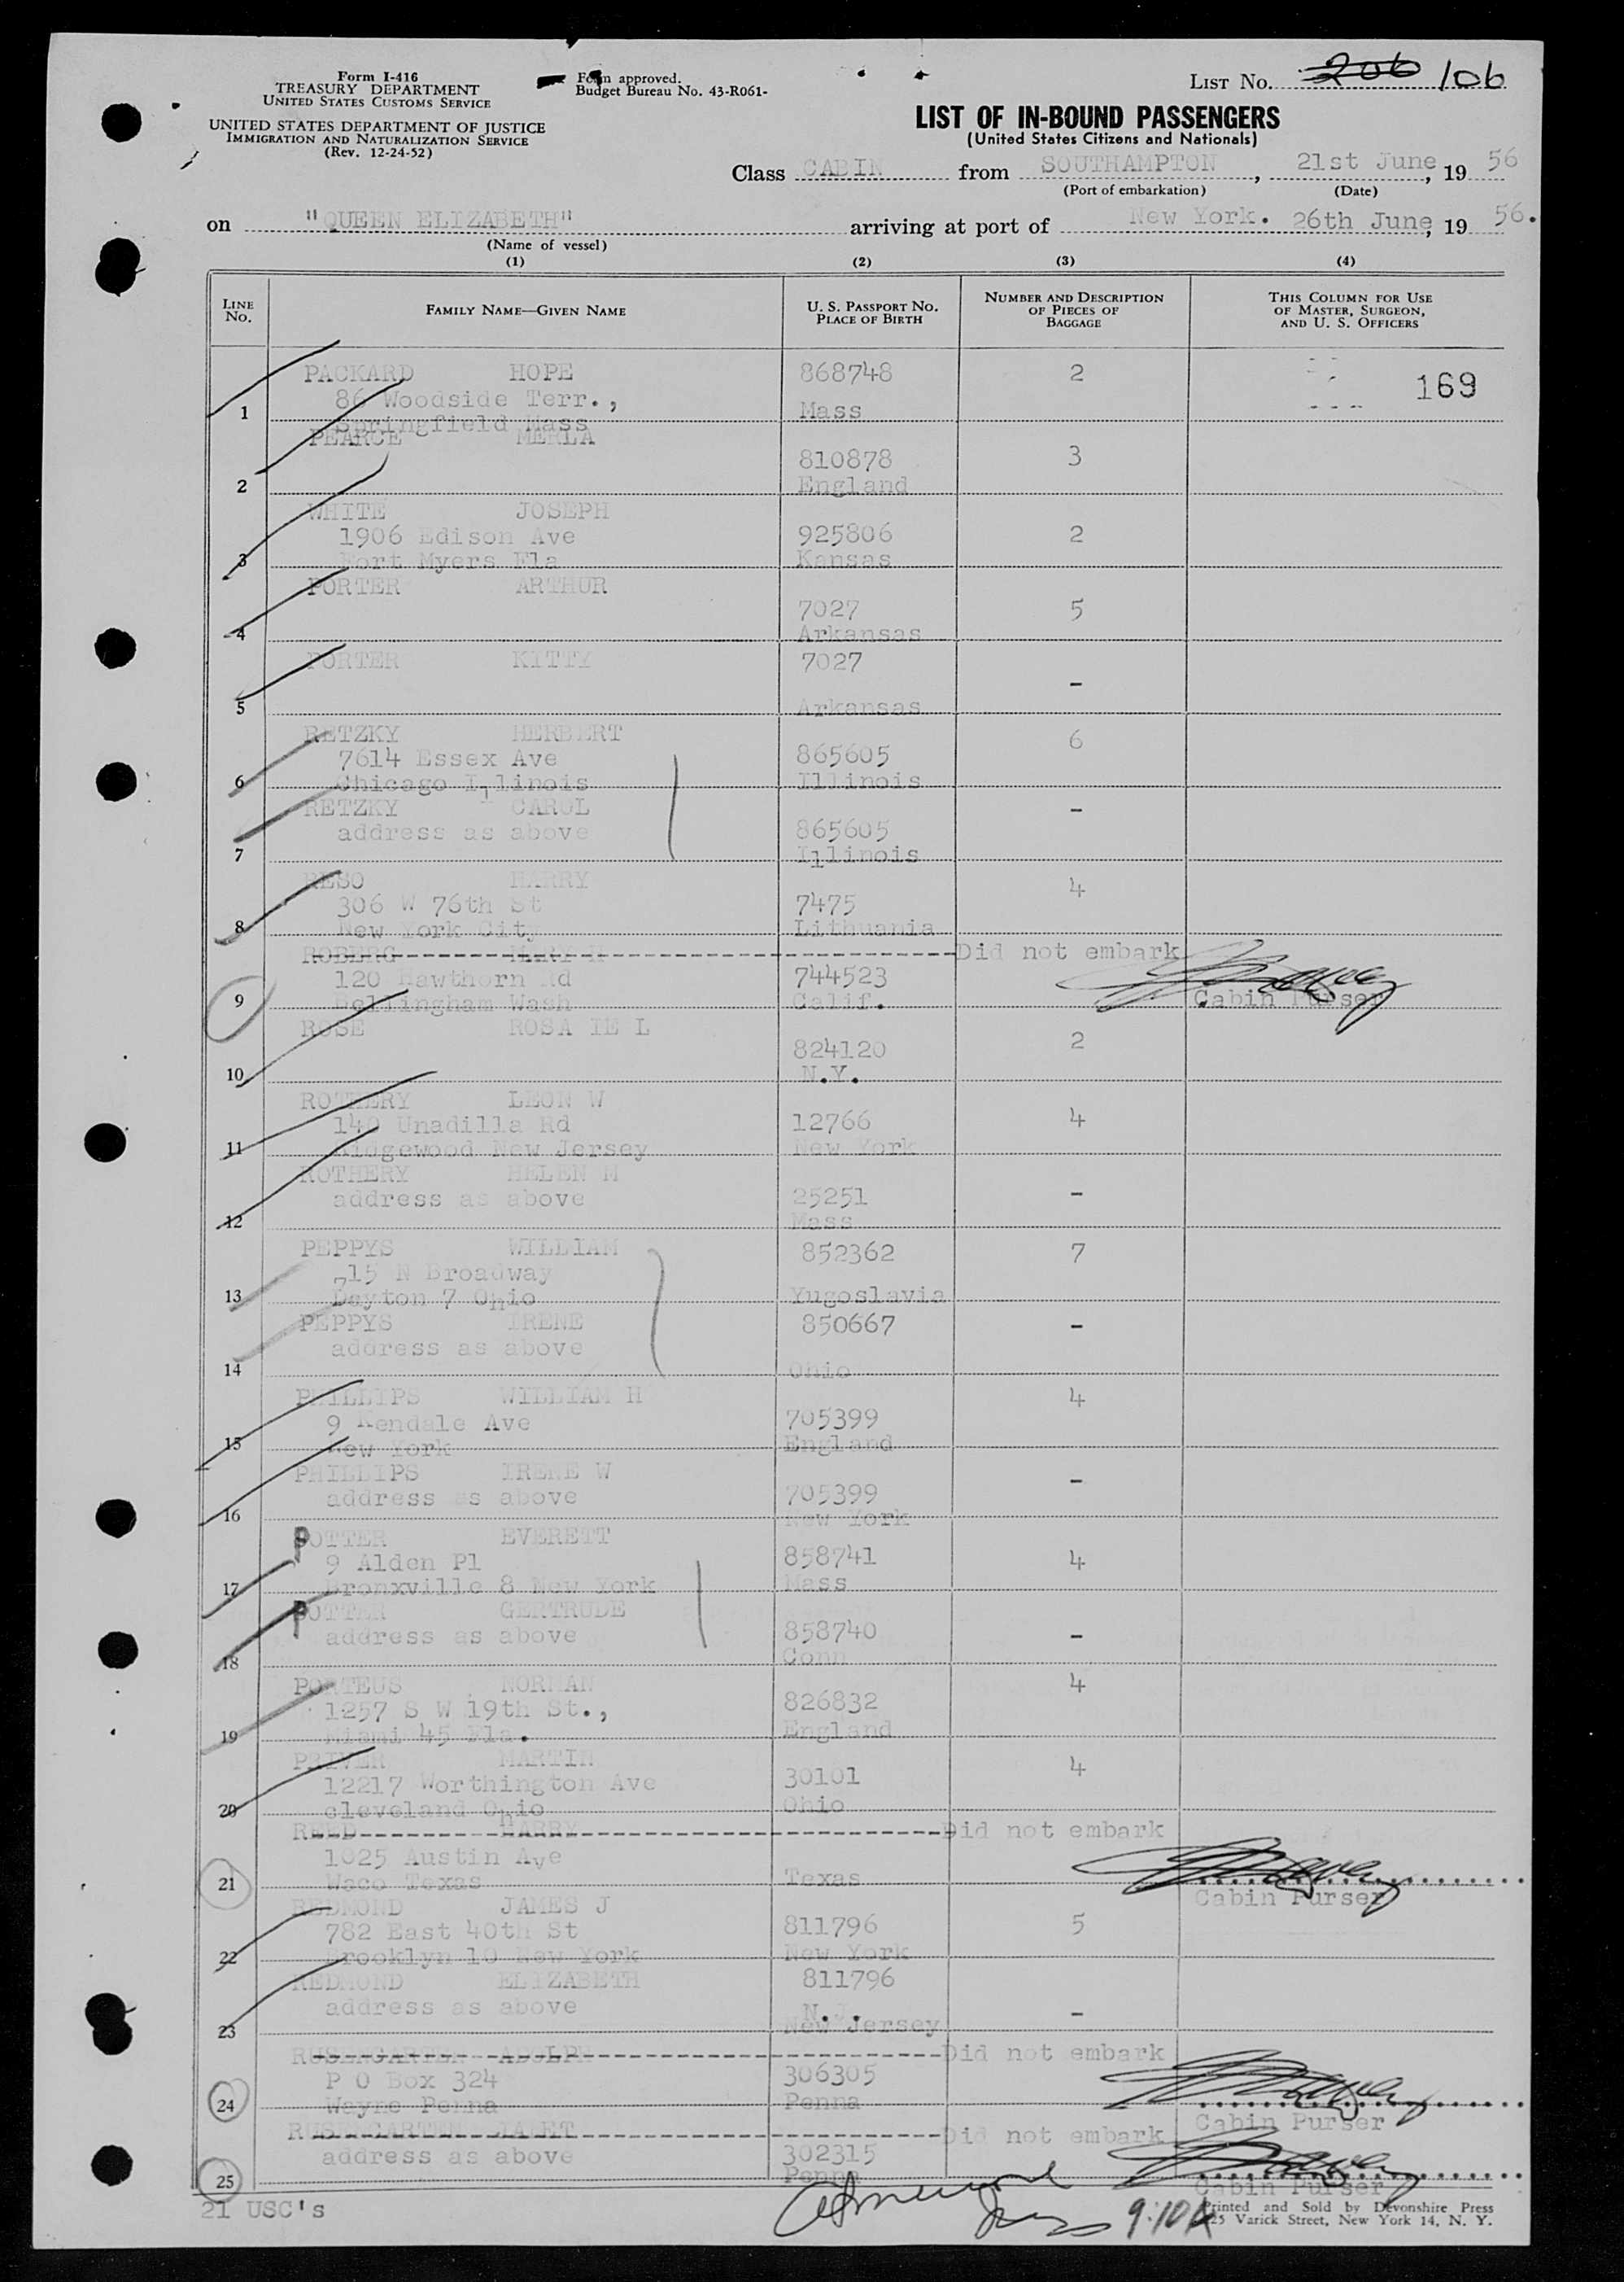 Form I-416
TREASURY DEPARTMENT
UNITED STATES CUSTOMS SERVICE
UNITED STATES DEPARTMENT OF JUSTICE
IMMIGRATION AND NATURALIZATION SERVICE
(Rev. 12-24-52)
Form approved.
Budget Bureau No. 43-R061-
LIST No. 206 106
LIST OF IN-BOUND PASSENGERS
(United States Citizens and Nationals)
Class CABIN from SOUTHAMPTON, 21st June, 19 56
(Port of embarkation) (Date)
on "QUEEN ELIZABETH" arriving at port of New York. 26th June, 19 56.
(Name of vessel)
(1) (2) (3) (4)
LINE No. FAMILY NAME—GIVEN NAME U. S. PASSPORT NO. PLACE OF BIRTH NUMBER AND DESCRIPTION OF PIECES OF BAGGAGE THIS COLUMN FOR USE OF MASTER, SURGEON, AND U. S. OFFICERS
PACKARD HOPE 868748 2
86 Woodside Terr., 169
1 Springfield Mass Mass
PEARCE MERLA
810878 3
2 England
WHITE JOSEPH
1906 Edison Ave 925806 2
3 Fort Myers Fla Kansas
PORTER ARTHUR
7027 5
4 Arkansas
PORTER KITTY 7027
-
5 Arkansas
RETZKY HERBERT 6
7614 Essex Ave 865605
6 Chicago Illinois Illinois
RETZKY CAROL -
address as above 865605
7 Illinois
RESO HARRY 4
306 W 76th St 7475
8 New York City Lithuania
ROBERG MARY H Did not embark
120 Hawthorn Rd 744523
9 Bellingham Wash Calif. Cabin Purser
ROSE ROSA IE L
824120 2
10 N.Y.
ROTHERY LEON W
140 Unadilla Rd 12766 4
11 Ridgewood New Jersey New York
ROTHERY HELEN M
address as above 25251 -
12 Mass
PEPPYS WILLIAM 852362 7
715 N Broadway
13 Dayton 7 Ohio Yugoslavia
PEPPYS IRENE 850667 -
address as above
14 Ohio
PHILLIPS WILLIAM H 4
9 Kendale Ave 705399
15 New York England
PHILLIPS IRENE W -
address as above 705399
16 New York
POTTER EVERETT
9 Alden Pl 858741 4
17 Bronxville 8 New York Mass
POTTER GERTRUDE
address as above 858740 -
18 Conn
PORTEUS NORMAN 4
1257 S W 19th St., 826832
19 Miami 45 Fla. England
PRIVER MARTIN 4
12217 Worthington Ave 30101
20 Cleveland Ohio Ohio
REED HARRY Did not embark
1025 Austin Ave
21 Waco Texas Texas
Cabin Purser
REDMOND JAMES J
782 East 40th St 811796 5
22 Brooklyn 10 New York New York
REDMOND ELIZABETH 811796
address as above N.J. -
23 New Jersey
ROSENGARTEN ADOLPH Did not embark
P O Box 324 306305
24 Wayne Penna Penna
Cabin Purser
ROSENGARTEN JANET Did not embark
address as above 302315
25 Penna
Cabin Purser
21 USC's
9:10A
Printed and Sold by Devonshire Press
225 Varick Street, New York 14, N. Y.